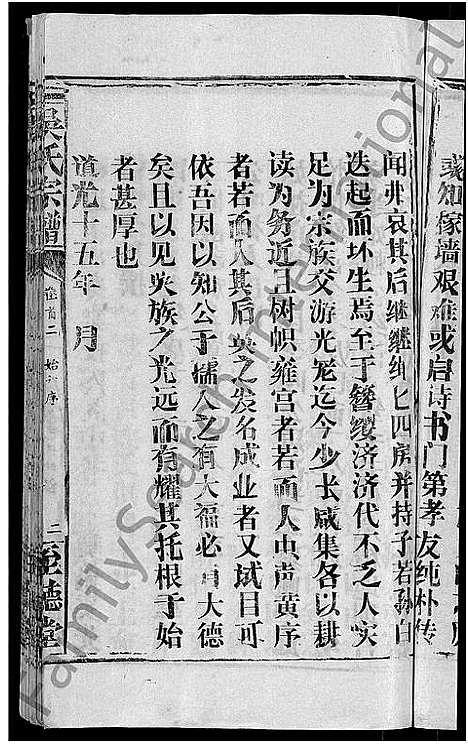 或知稼墙艰难或启诗书门第孝友纯朴传
闻非哀其后继继绳匕四房并持子若孙自
迭起而坏生焉至于簪缨济济代不乏人实
足为宗族交游光宠迄今少长咸集各以耕
读为务近且树帜雍宫者若而人虫声黄序
者若而人其后吴之发名成业者又拭目可
依吾因以知公于孺人之有大福必 大德
矣且以见吴族之光远而有耀其托根于始
者甚厚也
道光十五年 月
吴氏宗谱
卷首二 始 序
二
至德堂
FamilySearch International